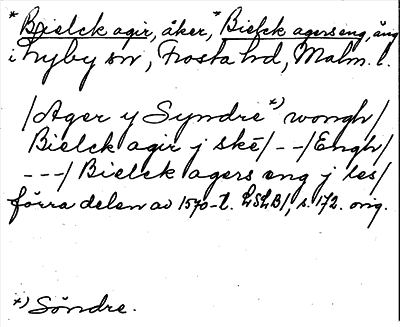 *Bielck agir, åker, *Bielck agers eng, äng
i Hyby sn, Frosta hd, Malm. l.
/Ager y Syndre *) wongh/
Bielck agir j ske/ - - /Engh/
- - - / Bielck agers eng j les/
förra delen av 1570-t. LSLB/, s. 172. orig.
*) Söndre.